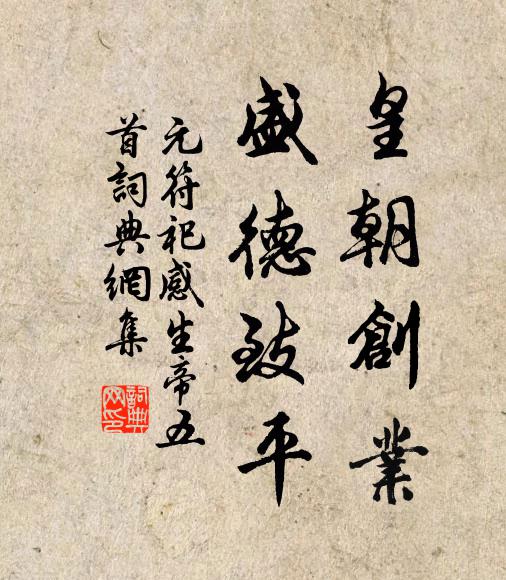 皇朝創業
盛德致平
元符祀感生帝五
首詞典網集
詞典
网印